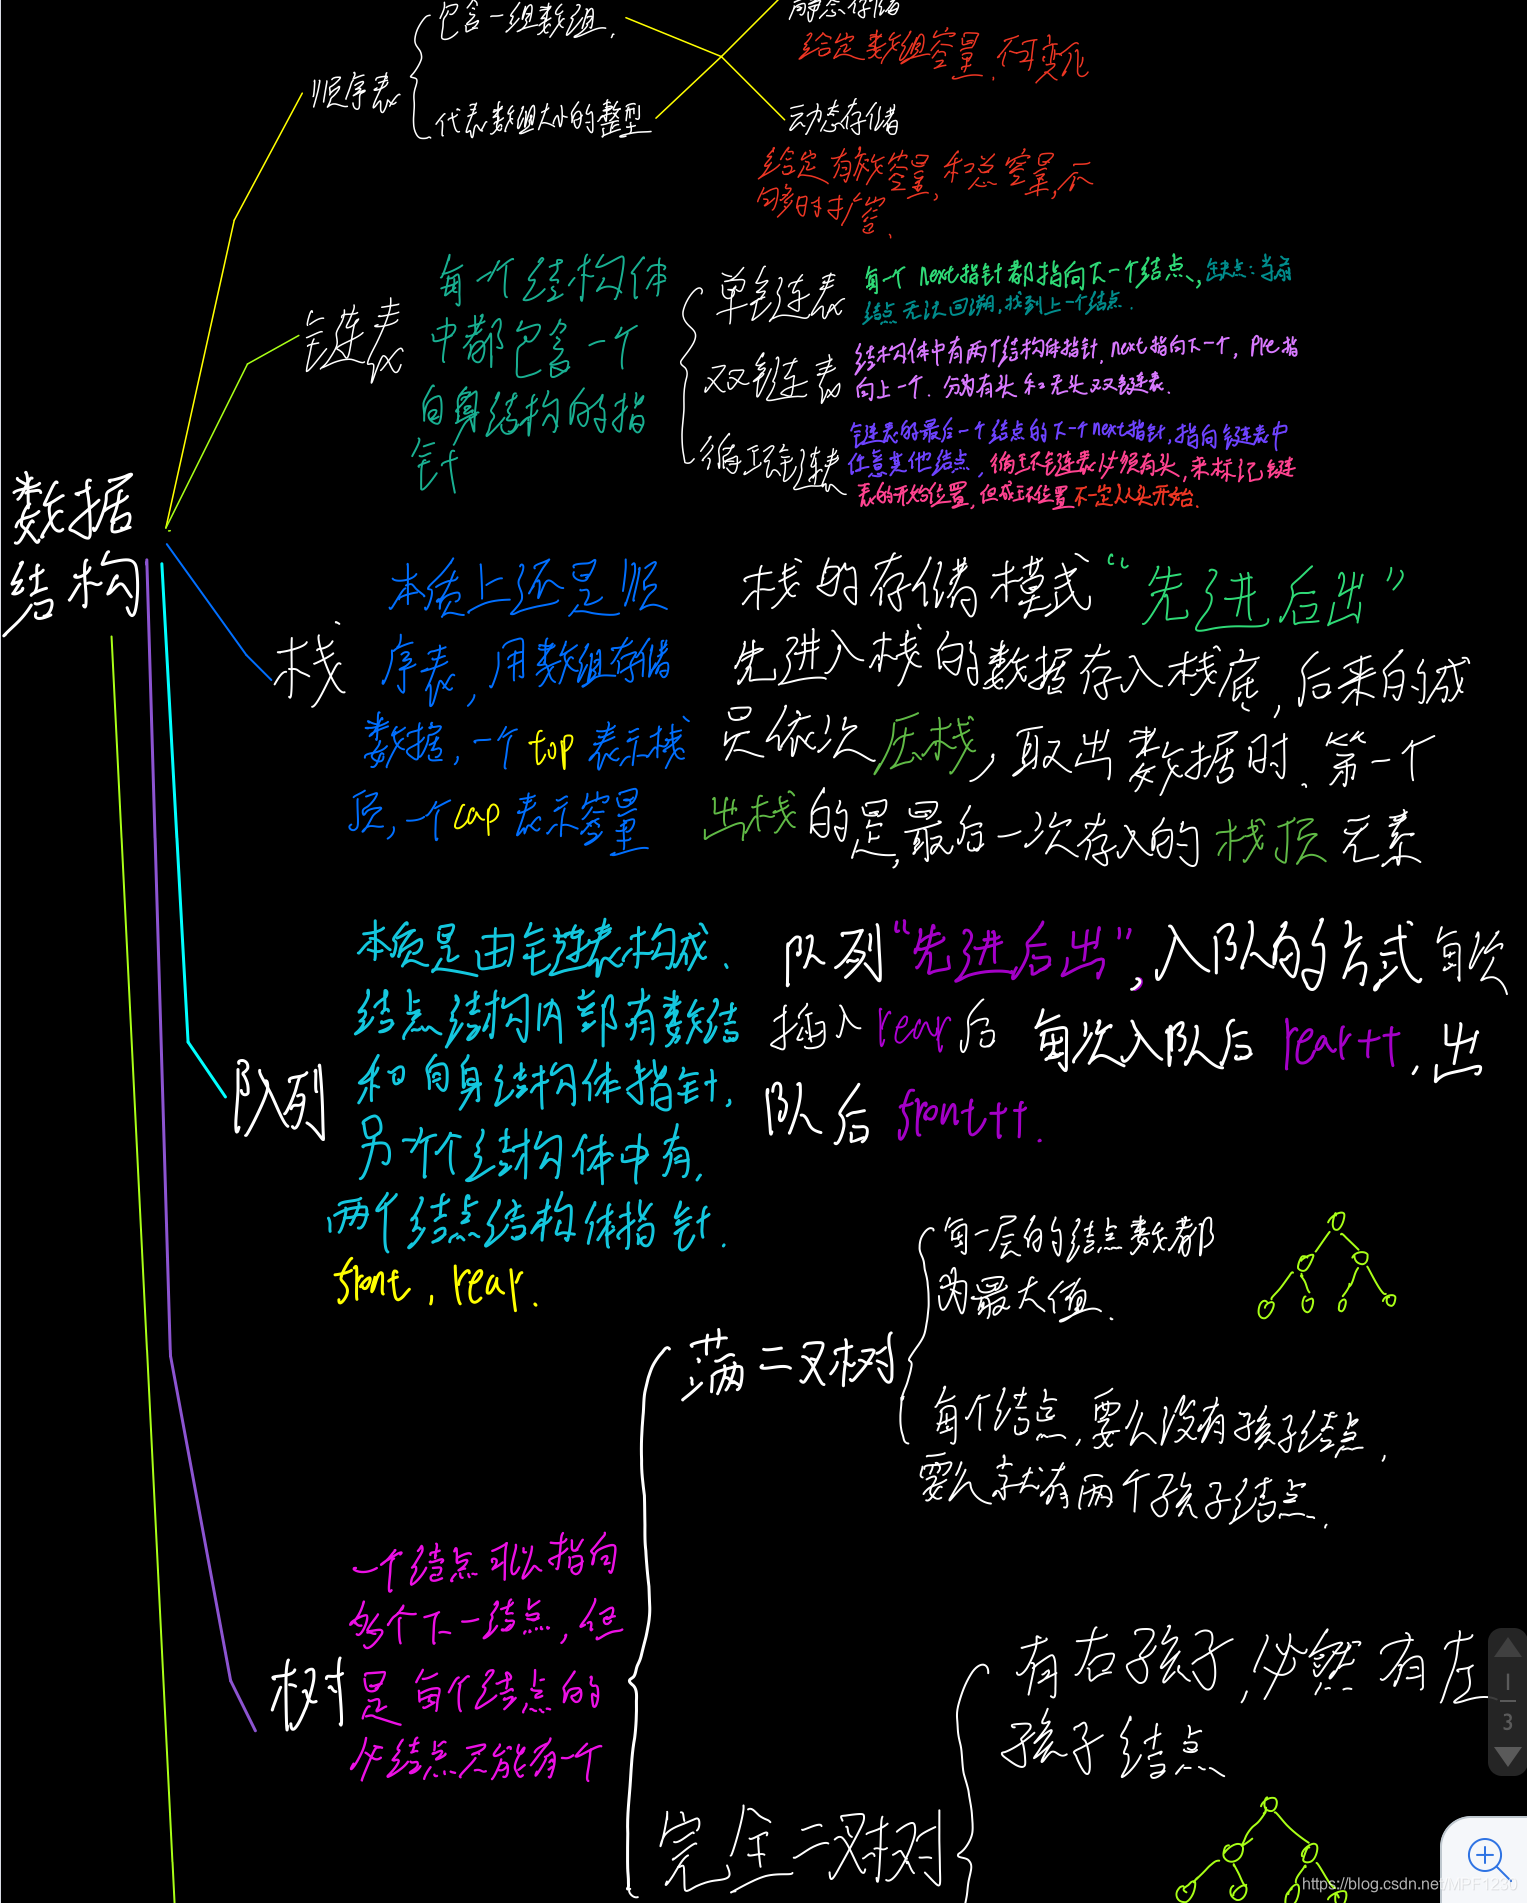 数据
结构
顺序表
包含一组数组.
代表数组大小的整型
静态存储
给定数组容量.不可变化
动态存储
给定有效容量,和总容量,不
够时扩容.
链表
每一个结构体
中都包含一个
自身结构的指
针
单链表
每一个next指针都指向下一个结点,缺点:当前
结点无法回溯,找到上一个结点.
双链表
结构体中有两个结构体指针,next指向下一个,pre指
向上一个.分为有头和无头双链表.
循环链表
链表的最后一个结点的下一个next指针,指向链表中
任意其他结点,循环链表必须有头,来标记链
表的开始位置,但成环位置不一定从头开始.
栈
本质上还是顺
序表,用数组存储
数据,一个top表示栈
顶,一个cap表示容量
栈的存储模式“先进后出”
先进入栈的数据存入栈底,后来的成
员依次压栈,取出数据时.第一个
出栈的是,最后一次存入的栈顶元素
队列
本质是由链表构成.
结点结构内部有数结
和自身结构体指针,
另一个个结构体中有,
两个结点结构体指针.
front,rear.
队列“先进后出”,入队的方式每次
插入rear后 每次入队后rear++,出
队后front++.
树
一个结点可以指向
多个下一结点,但
是每个结点的
父结点只能有一个
满二叉树
每一层的结点数都
为最大值.
每个结点,要么没有孩子结点,
要么就有两个孩子结点.
完全二叉树
有右孩子,必然有左
孩子结点
1
3
https://blog.csdn.net/MPF1230